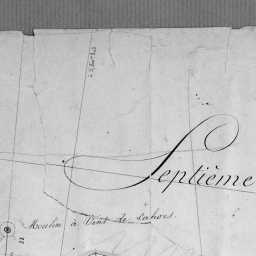 Septième
Moulin à Vent de Cahors.